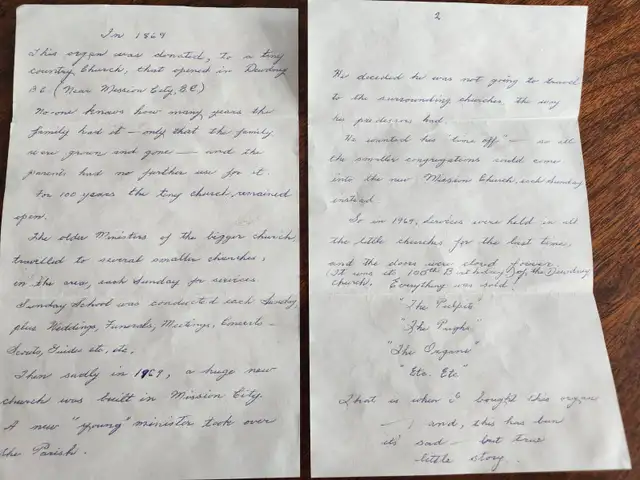 In 1869
This organ was donated, to a tiny
country Church, that opened in Dewdney
B.C. (Near Mission City, B.C)
No-one knows how many years the
family had it — only that the family
were grown and gone — and the
parents had no further use for it.
For 100 years the tiny church, remained
open.
The older Ministers of the bigger church
travelled to several smaller churches,
in the area, each Sunday for services.
Sunday School was conducted each Sunday,
plus Weddings, Funerals, Meetings, Concerts —
Scouts, Guides etc, etc,
Then sadly in 1969, a huge new
church was built in Mission City.
A new "young" minister took over
the Parish.
2
He decided he was not going to travel
to the surrounding churches, the way
his had.
He wanted his "time off" — so all
the smaller congregations could come
into the new Mission Church, each Sunday
instead
So in 1969, services were held in all
the little churches for the last time,
and the doors were closed forever.
It was it 100th Birthday of the Dewdney
church. Everything was sold!
"The Pulpits"
"The Pughs"
"The Organs"
"Etc. Etc"
That is when I bought this organ
— and, this has been
its' sad — but true
little story.